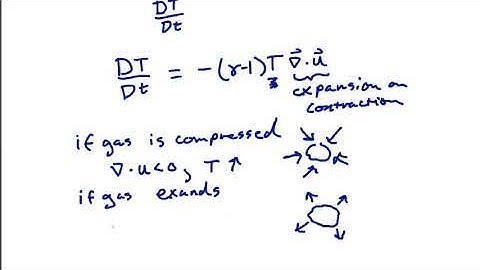 DT/Dt
DT/Dt = -(γ-1)T ∇⃗·u⃗
expansion or
contraction
if gas is compressed
∇·u<0, T↑
if gas exands